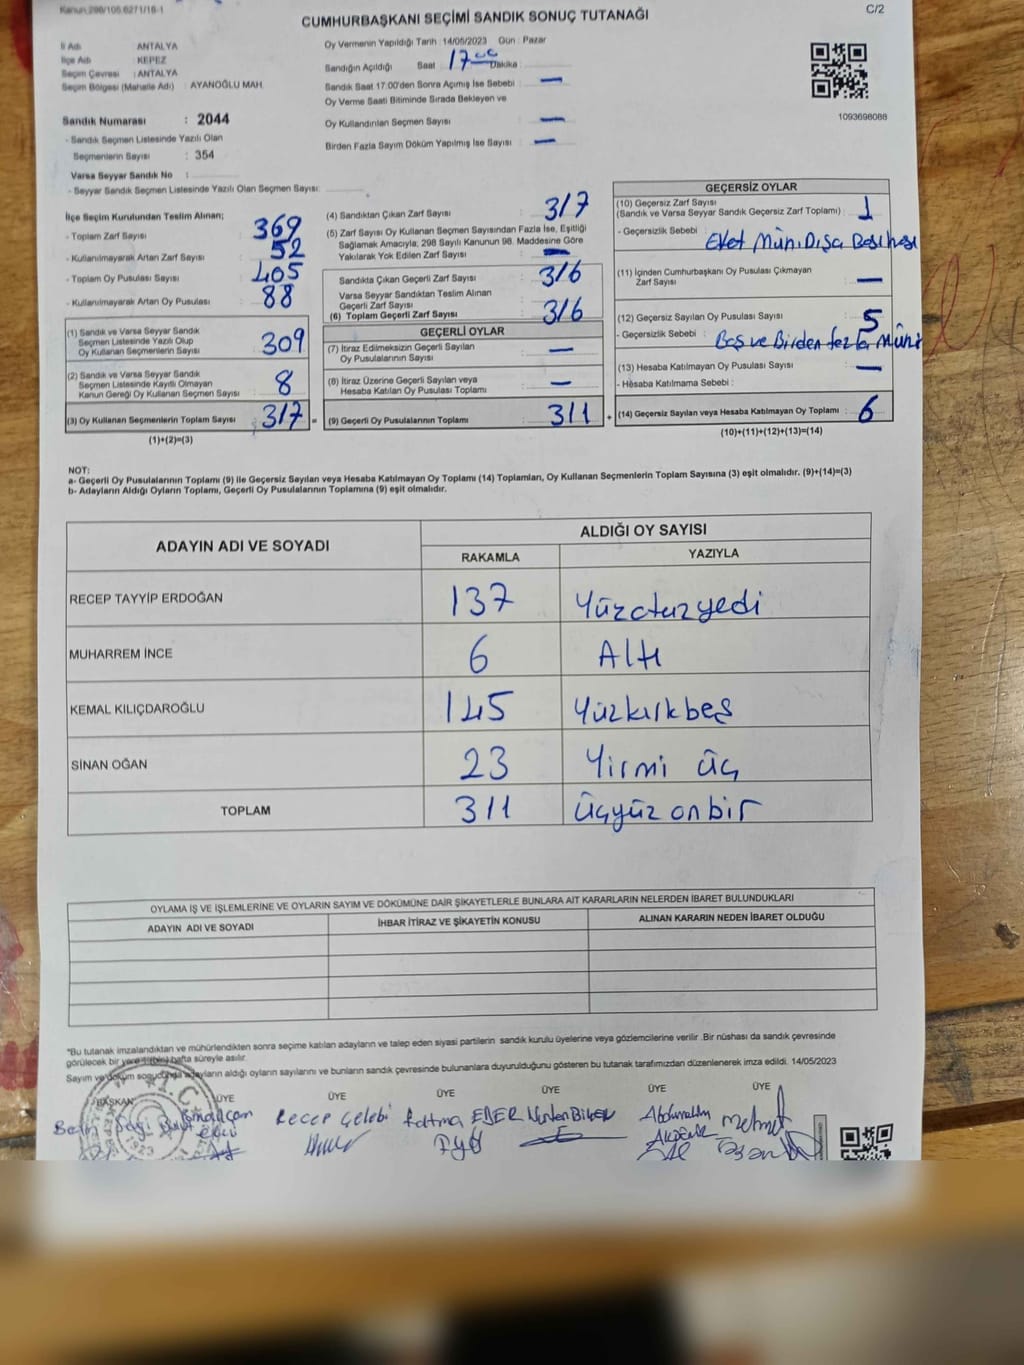 Kanun 298/105 6271/18-1
CUMHURBAŞKANI SEÇİMİ SANDIK SONUÇ TUTANAĞI
C/2
İl Adı ANTALYA
İlçe Adı KEPEZ
Seçim Çevresi : ANTALYA
Seçim Bölgesi (Mahalle Adı) : AYANOĞLU MAH.
Sandık Numarası : 2044
- Sandık Seçmen Listesinde Yazılı Olan
Seçmenlerin Sayısı : 354
Varsa Seyyar Sandık No :
- Seyyar Sandık Seçmen Listesinde Yazılı Olan Seçmen Sayısı:
Oy Vermenin Yapıldığı Tarih : 14/05/2023 Gün : Pazar
Sandığın Açıldığı Saat 17 00 Dakika
Sandık Saat 17:00'den Sonra Açımış İse Sebebi : —
Oy Verme Saati Bitiminde Sırada Bekleyen ve
Oy Kullandırılan Seçmen Sayısı : —
Birden Fazla Sayım Döküm Yapılmış İse Sayısı : —
1093698088
İlçe Seçim Kurulundan Teslim Alınan;
- Toplam Zarf Sayısı : 369
- Kullanılmayarak Artan Zarf Sayısı : 52
- Toplam Oy Pusulası Sayısı : 405
- Kullanılmayarak Artan Oy Pusulası : 88
(1) Sandık ve Varsa Seyyar Sandık
Seçmen Listesinde Yazılı Olup
Oy Kullanan Seçmenlerin Sayısı : 309
(2) Sandık ve Varsa Seyyar Sandık
Seçmen Listesinde Kayıtlı Olmayan
Kanun Gereği Oy Kullanan Seçmen Sayısı : 8
(3) Oy Kullanan Seçmenlerin Toplam Sayısı : 317 =
(1)+(2)=(3)
(4) Sandıktan Çıkan Zarf Sayısı : 317
(5) Zarf Sayısı Oy Kullanan Seçmen Sayısından Fazla İse, Eşitliği
Sağlamak Amacıyla, 298 Sayılı Kanunun 98. Maddesine Göre
Yakılarak Yok Edilen Zarf Sayısı : —
Sandıkta Çıkan Geçerli Zarf Sayısı : 316
Varsa Seyyar Sandıktan Teslim Alınan
Geçerli Zarf Sayısı
(6) Toplam Geçerli Zarf Sayısı : 316
GEÇERLİ OYLAR
(7) İtiraz Edilmeksizin Geçerli Sayılan
Oy Pusulalarının Sayısı : —
(8) İtiraz Üzerine Geçerli Sayılan veya
Hesaba Katılan Oy Pusulası Toplamı : —
(9) Geçerli Oy Pusulalarının Toplamı : 311 +
GEÇERSİZ OYLAR
(10) Geçersiz Zarf Sayısı
(Sandık ve Varsa Seyyar Sandık Geçersiz Zarf Toplamı) : 1
- Geçersizlik Sebebi : Evet Mührü Dışa Basılması
(11) İçinden Cumhurbaşkanı Oy Pusulası Çıkmayan
Zarf Sayısı : —
(12) Geçersiz Sayılan Oy Pusulası Sayısı : 5
- Geçersizlik Sebebi : Boş ve Birden fazla Mühür
(13) Hesaba Katılmayan Oy Pusulası Sayısı : —
- Hesaba Katılmama Sebebi :
(14) Geçersiz Sayılan veya Hesaba Katılmayan Oy Toplamı : 6
(10)+(11)+(12)+(13)=(14)
NOT:
a- Geçerli Oy Pusulalarının Toplamı (9) ile Geçersiz Sayılan veya Hesaba Katılmayan Oy Toplamı (14) Toplamları, Oy Kullanan Seçmenlerin Toplam Sayısına (3) eşit olmalıdır. (9)+(14)=(3)
b- Adayların Aldığı Oyların Toplamı, Geçerli Oy Pusulalarının Toplamına (9) eşit olmalıdır.
ADAYIN ADI VE SOYADI
ALDIĞI OY SAYISI
RAKAMLA YAZIYLA
RECEP TAYYİP ERDOĞAN 137 Yüzotuzyedi
MUHARREM İNCE 6 Altı
KEMAL KILIÇDAROĞLU 145 Yüzkırkbeş
SİNAN OĞAN 23 Yirmi üç
TOPLAM 311 Üçyüz onbir
OYLAMA İŞ VE İŞLEMLERİNE VE OYLARIN SAYIM VE DÖKÜMÜNE DAİR ŞİKAYETLERLE BUNLARA AİT KARARLARIN NELERDEN İBARET BULUNDUKLARI
ADAYIN ADI VE SOYADI İHBAR İTİRAZ VE ŞİKAYETİN KONUSU ALINAN KARARIN NEDEN İBARET OLDUĞU
"Bu tutanak imzalandıktan ve mühürlendikten sonra seçime katılan adayların ve talep eden siyasi partilerin sandık kurulu üyelerine veya gözlemcilerine verilir. Bir nüshası da sandık çevresinde
görülecek bir yere 1 (bir) hafta süreyle asılır.
Sayım ve döküm sonucunda adayların aldığı oyların sayılarını ve bunların sandık çevresinde bulunanlara duyurulduğunu gösteren bu tutanak tarafımızdan düzenlenerek imza edildi. 14/05/2023
BAŞKAN ÜYE ÜYE ÜYE ÜYE ÜYE ÜYE
Recep Çelebi
Fatma
Mehmet
T.C.
1923